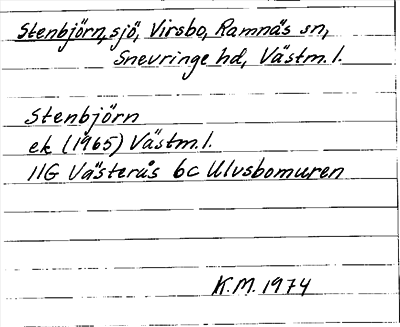 Stenbjörn, sjö, Virsbo, Ramnäs sn,
Snevringe hd, Västm.l.
Stenbjörn
ek (1965) Västm.l.
11G Västerås 6c Ulvsbomuren
K.M. 1974